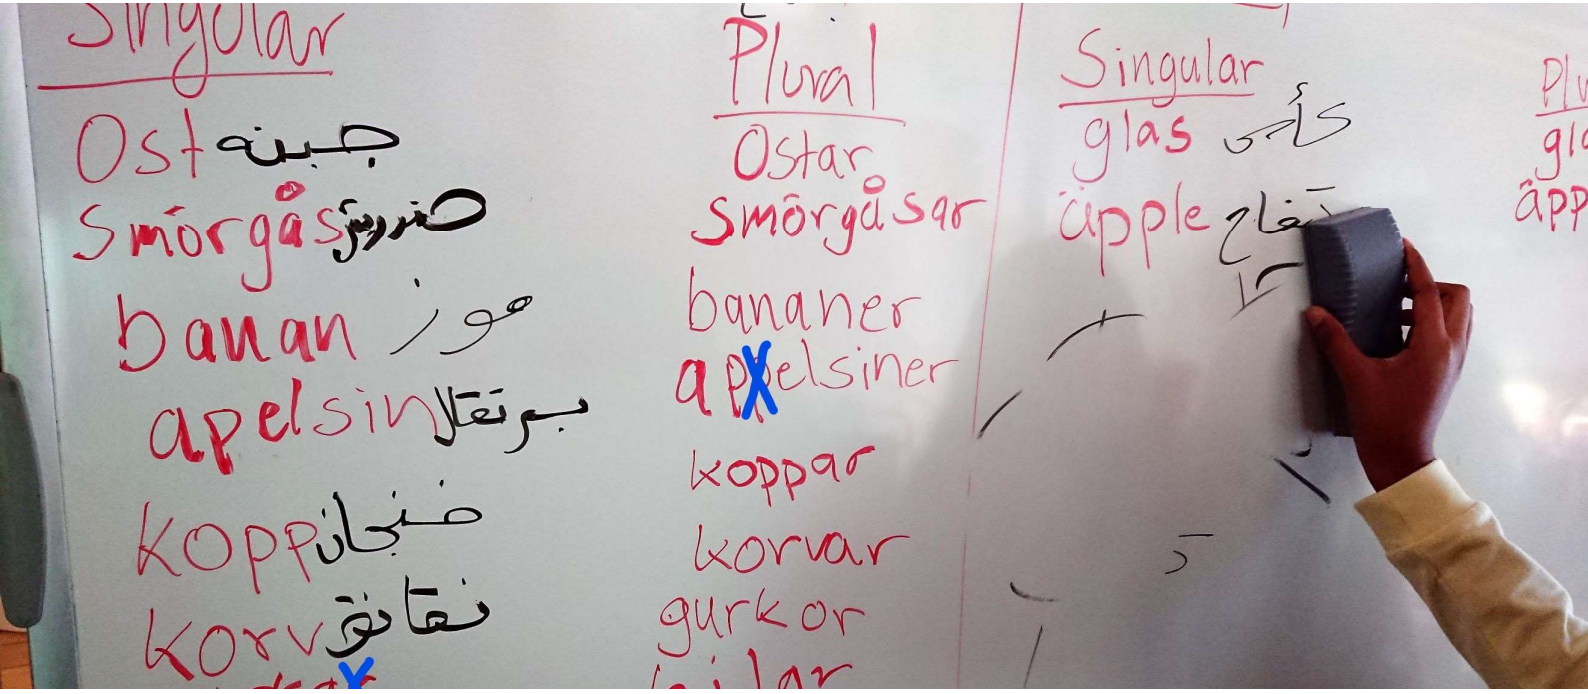 Singular
Ost جبنه
Smörgås
banan موز
apelsin برتقالا
Kopp فنجان
Korv نقانق
Plural
Ostar
Smörgåsar
bananer
appelsiner
koppar
korvar
gurkor
Singular
glas كأس
äpple تفاح